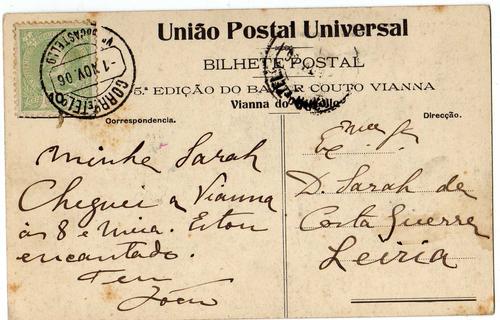 União Postal Universal
BILHETE POSTAL
5.ª EDIÇÃO DO BAZAR COUTO VIANNA
Vianna do
Correspondencia.
Direcção.
CORREIO
1 NOV. 06
Minha Sarah
Cheguei a Vianna
ás 8 e meia. Estou
encantado.
Teu
João
Ex.ma Sr.ª
D. Sarah da
Costa Guerra
Leiria